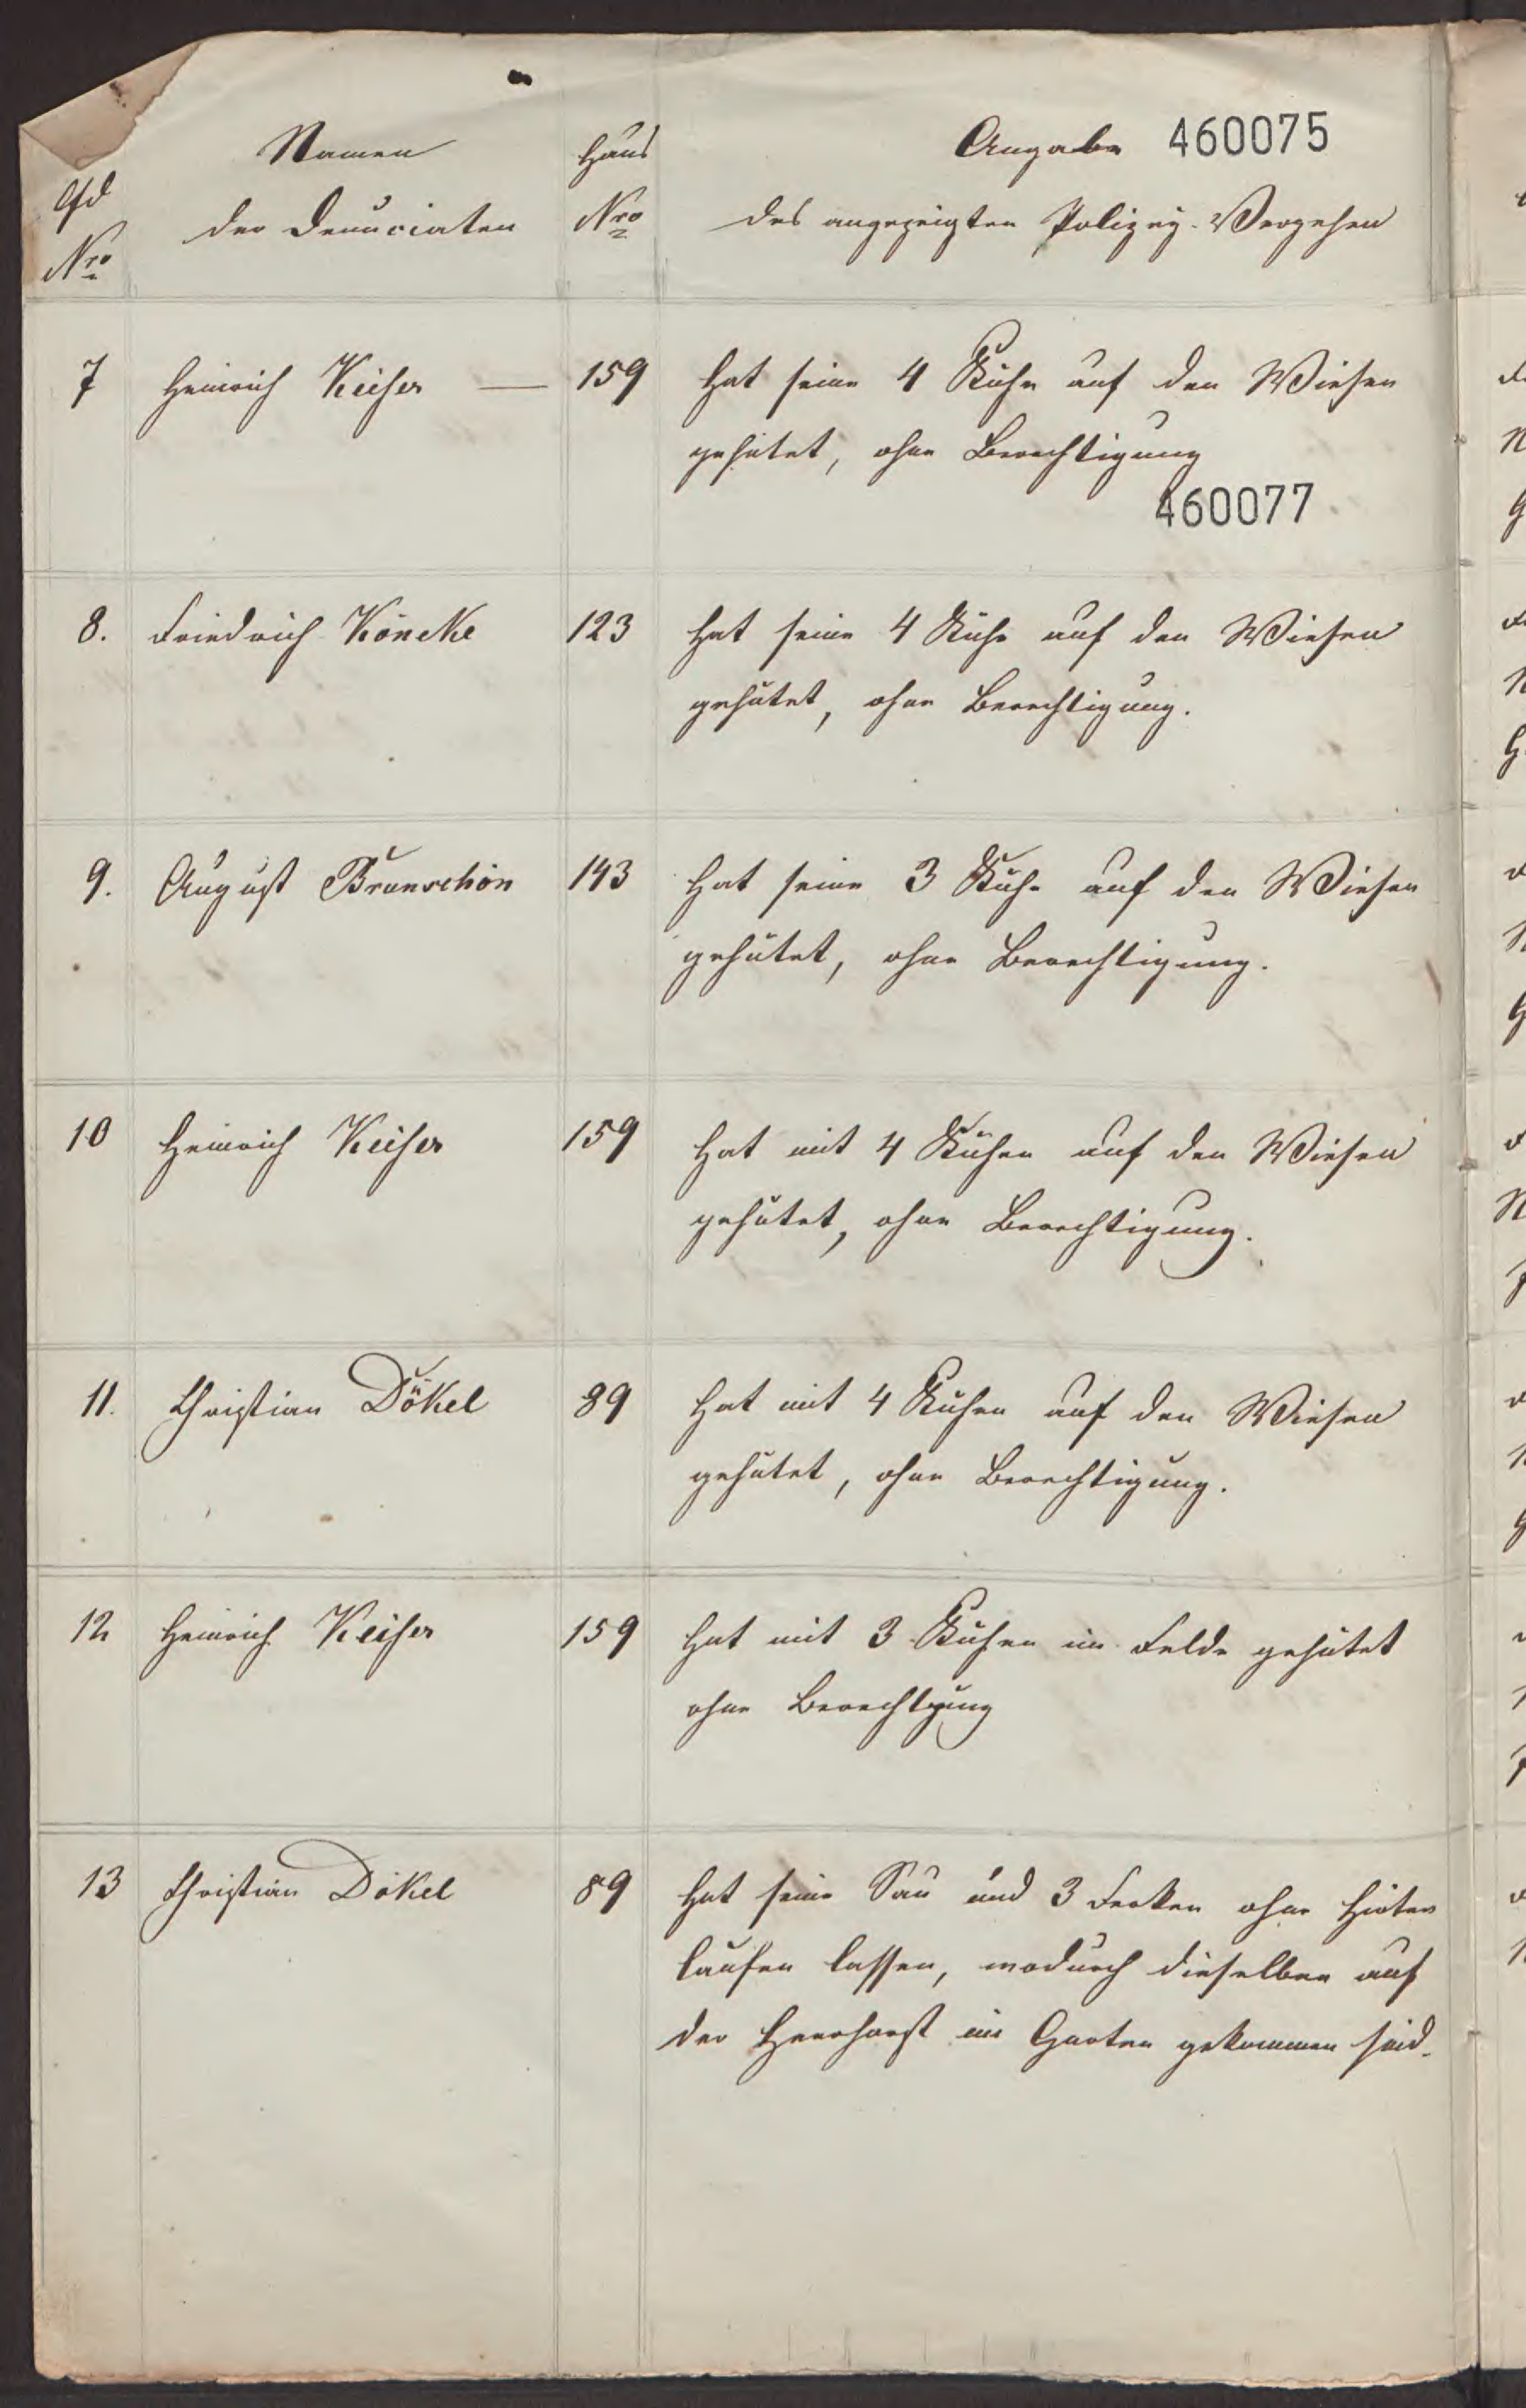 Namen Haus Angabe 460075
lfd der Denunciaten Nro des angezeigten Polizey-Vergehen
Nro
7 Heinrich Keiser — 159 Hat seine 4 Kühe auf den Wiesen
gehütet, ohne Berechtigung
460077
8. Friedrich Köneke 123 Hat seine 4 Kühe auf den Wiesen
gehütet, ohne Berechtigung.
9. August Brunschön 143 Hat seine 3 Kühe auf den Wiesen
gehütet, ohne Berechtigung.
10 Heinrich Keiser 159 Hat mit 4 Kühen auf den Wiesen
gehütet, ohne Berechtigung.
11. Christian Dökel 89 Hat mit 4 Kühen auf den Wiesen
gehütet, ohne Berechtigung.
12 Heinrich Keiser 159 Hat mit 3 Kühen im Felde gehütet
ohne Berechtgung
13 Christian Dökel 89 Hat seine Sau und 3 Ferken ohne Hirten
laufen lassen, wodurch dieselben auf
der im Garten gekommen sind.